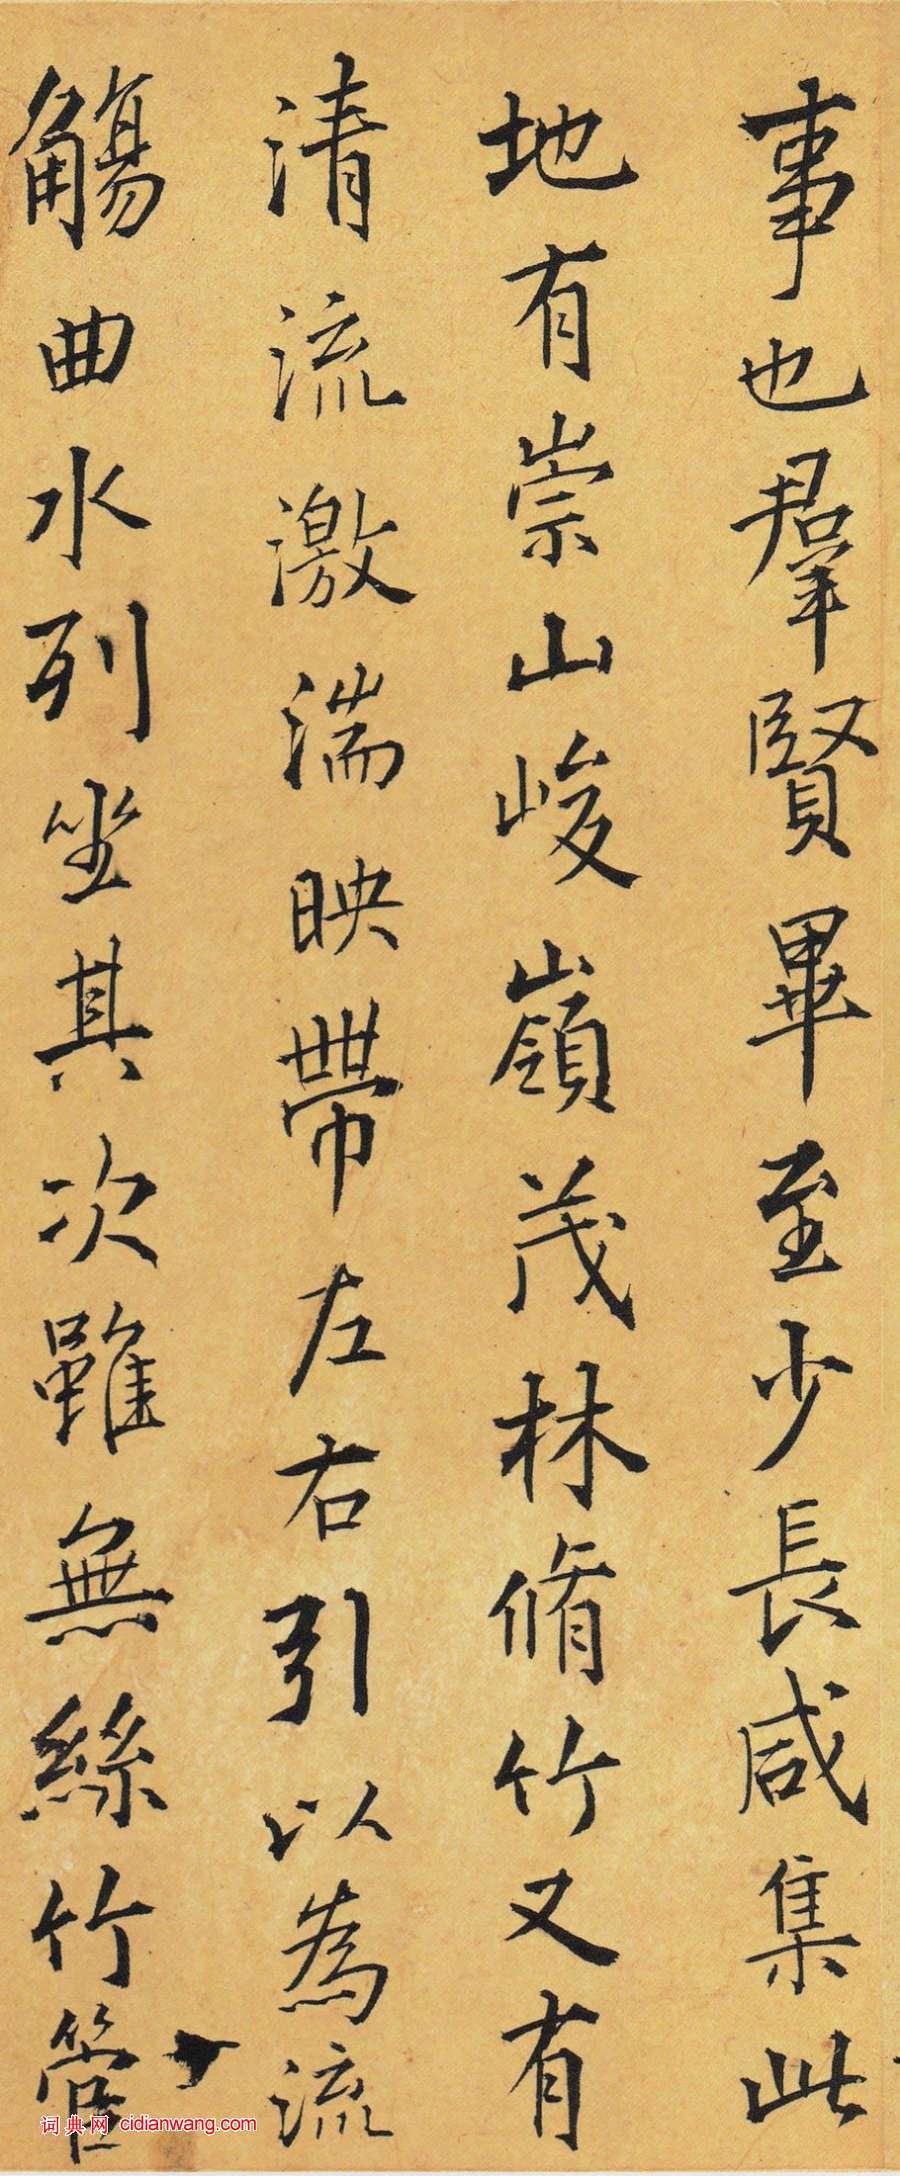 事也群賢畢至少長咸集此
地有崇山峻嶺茂林脩竹又有
清流激湍映帶左右引以為流
觴曲水列坐其次雖無絲竹管
词典网 cidianwang.com